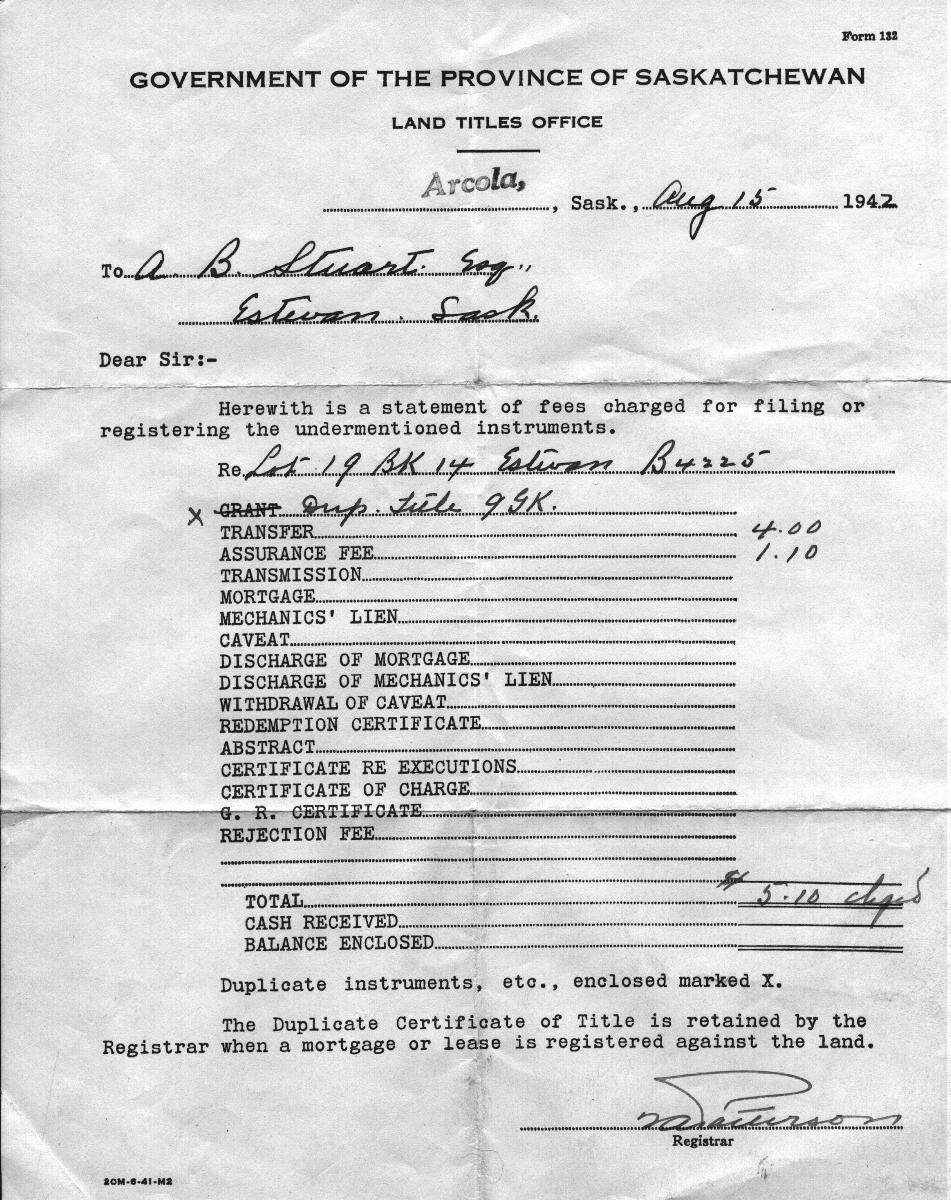 Form 132
GOVERNMENT OF THE PROVINCE OF SASKATCHEWAN
LAND TITLES OFFICE
Arcola, , Sask., Aug 15 1942
To A. B. Stuart. Esq.,
Estevan. Sask.
Dear Sir:-
Herewith is a statement of fees charged for filing or
registering the undermentioned instruments.
Re Lot 19 BK 14 Estevan B4225
X GRANT Dup. Title 9GK.
TRANSFER 4.00
ASSURANCE FEE 1.10
TRANSMISSION
MORTGAGE
MECHANICS' LIEN
CAVEAT
DISCHARGE OF MORTGAGE
DISCHARGE OF MECHANICS' LIEN
WITHDRAWAL OF CAVEAT
REDEMPTION CERTIFICATE
ABSTRACT
CERTIFICATE RE EXECUTIONS
CERTIFICATE OF CHARGE
G. R. CERTIFICATE
REJECTION FEE
TOTAL $ 5.10 chged
CASH RECEIVED
BALANCE ENCLOSED
Duplicate instruments, etc., enclosed marked X.
The Duplicate Certificate of Title is retained by the
Registrar when a mortgage or lease is registered against the land.
Paterson
Registrar
20M-6-41-M2